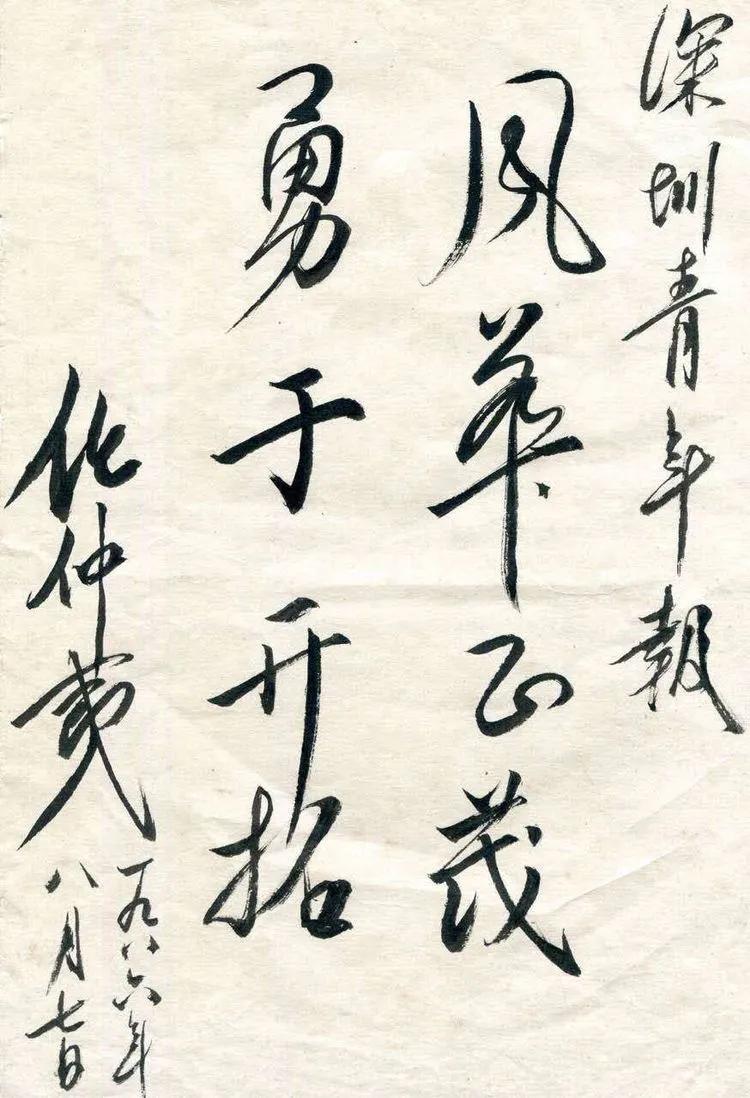 深圳青年報
风华正茂
勇于开拓
任仲夷
一九八六年
八月七日